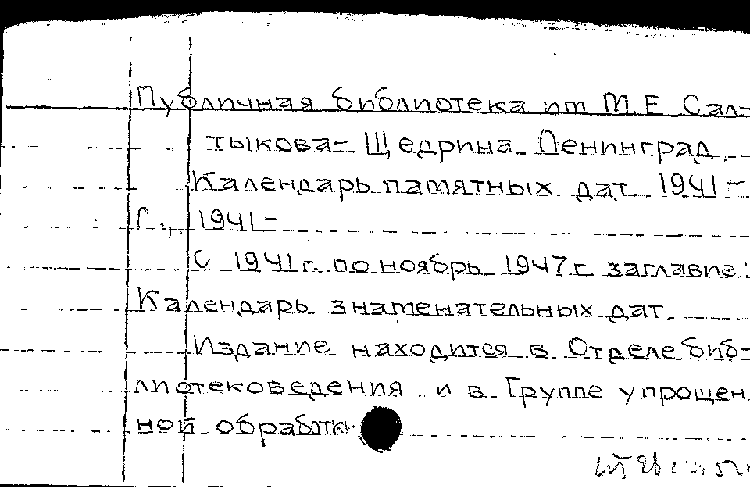 Публичная библиотека им М.Е. Сал-
тыкова-Щедрина. Ленинград.
Календарь памятных дат 1941-
Г., 1941-
С 1941г. по ноябрь 1947г. заглавие:
Календарь знаменательных дат.
Издание находится в Отделе биб-
лиотековедения и в Группе упрощен
ной обработки